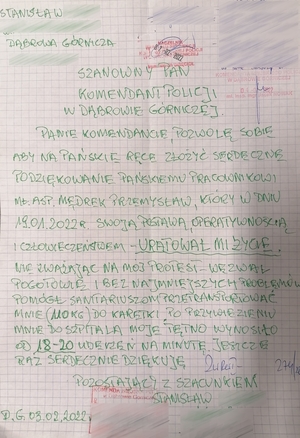 STANISŁAW
DĄBROWA GÓRNICZA
SZANOWNY PAN
KOMENDANT POLICJI
W DĄBROWIE GÓRNICZEJ.
PANIE KOMENDANCIE, POZWOLĘ SOBIE
ABY NA PAŃSKIE RĘCE ZŁOŻYĆ SERDECZNE
PODZIĘKOWANIE PAŃSKIEMU PRACOWNIKOWI
MŁ.ASP. MĘDREK PRZEMYSŁAW, KTÓRY W DNIU
19.01.2022r. SWOJĄ POSTAWĄ, OPERATYWNOŚCIĄ
I CZŁOWIECZEŃSTWEM - URATOWAŁ MI ŻYCIE.
NIE ZWAŻAJĄC NA MÓJ PROTEST - WEZWAŁ
POGOTOWIE I BEZ NAJMNIEJSZYCH PROBLEMÓW
POMÓGŁ SANITARIUSZOM PRZETRANSPORTOWAĆ
MNIE (110KG) DO KARETKI. PO PRZYWIEZIENIU
MNIE DO SZPITALA MOJE TĘTNO WYNOSIŁO
OD 18-20 UDERZEŃ NA MINUTĘ. JESZCZE
RAZ SERDECZNIE DZIĘKUJĘ
POZOSTAJĄCY Z SZACUNKIEM
STANISŁAW
D.G. 03.02.2022r